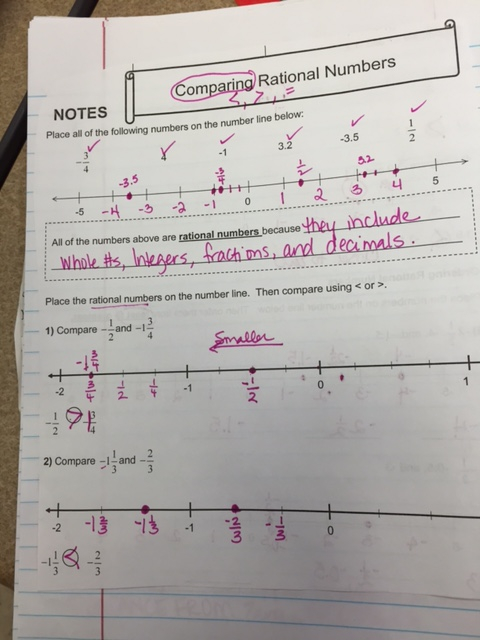 Comparing Rational Numbers
<, >, =
NOTES
Place all of the following numbers on the number line below:
-3/4 4 -1 3.2 -3.5 1/2
-3.5 -3/4 1/2 3.2
-5 -4 -3 -2 -1 0 1 2 3 4 5
All of the numbers above are rational numbers because they include
whole #s, Integers, fractions, and decimals.
Place the rational numbers on the number line. Then compare using < or >.
1) Compare -1/2 and -1 3/4
Smaller
-1 3/4
-2 3/4 1/2 1/4 -1 -1/2 0 1
-1/2 > -1 3/4
2) Compare -1 1/3 and -2/3
-2 -1 2/3 -1 1/3 -1 -2/3 -1/3 0
-1 1/3 < -2/3